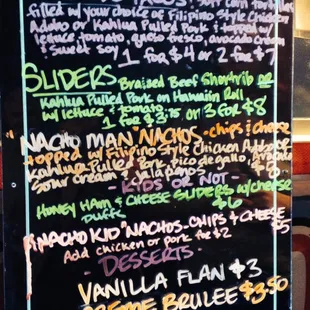 TACOS - soft corn tortillas
filled w/ your choice of Filipino Style Chicken
Adobo or Kahlua Pulled Pork topped w/
lettuce, tomato, queso fresco, avocado cream
& sweet soy 1 for $4 or 2 for $7
SLIDERS Braised Beef Shortrib or
Kahlua Pulled Pork on Hawaiin Roll
w/ lettuce & tomato
1 for $3.75 or 3 for $8
NACHO MAN NACHOS - chips & cheese
topped w/ Filipino Style Chicken Adobo or
Kahlua Pulled Pork, pico de gallo,
sour cream & jalapenos
- KIDS OR NOT -
HONEY HAM & CHEESE SLIDERS w/ cheese
Puffs $6
"NACHO KID" NACHOS - CHIPS & CHEESE
Add chicken or pork for $2 $5
- DESSERTS -
VANILLA FLAN $3
CREME BRULEE $3.50